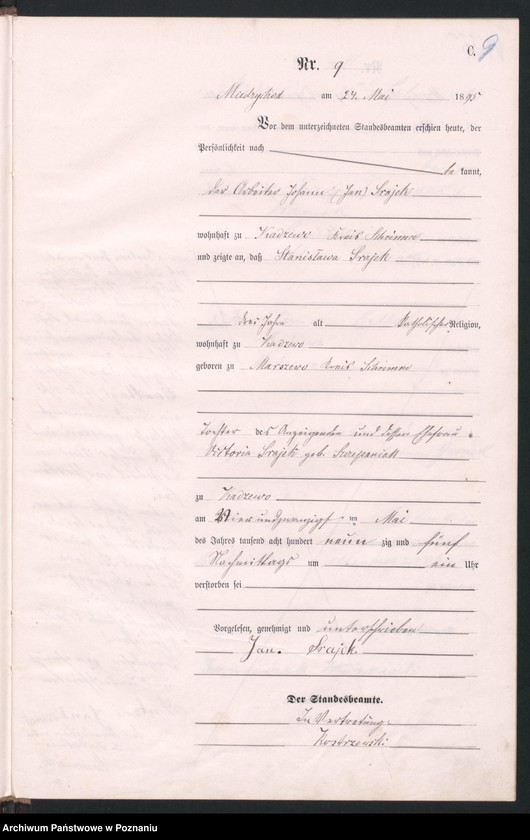 C. 9
Nr. 9
am 24. Mai 1895
Vor dem unterzeichneten Standesbeamten erschien heute, der
Persönlichkeit nach
be kannt,
der Arbeiter Johann (Jan) Srajek
wohnhaft zu Kadzewo Kreis Schrimm
und zeigte an, daß Stanisława Srajek
drei Jahre alt katholischer Religion,
wohnhaft zu Kadzewo
geboren zu Marszewo Kreis Schrimm
Tochter des Anzeigenden und dessen Ehefrau
Viktoria Srajek geb. Szczepaniak
zu Kadzewo
am vierundzwanzigsten Mai
des Jahres tausend acht hundert neun zig und fünf
Nachmittags um ein Uhr
verstorben sei
Vorgelesen, genehmigt und unterschrieben
Jan. Srajek
Der Standesbeamte.
In Vertretung.
Kostrzewski
Archiwum Państwowe w Poznaniu